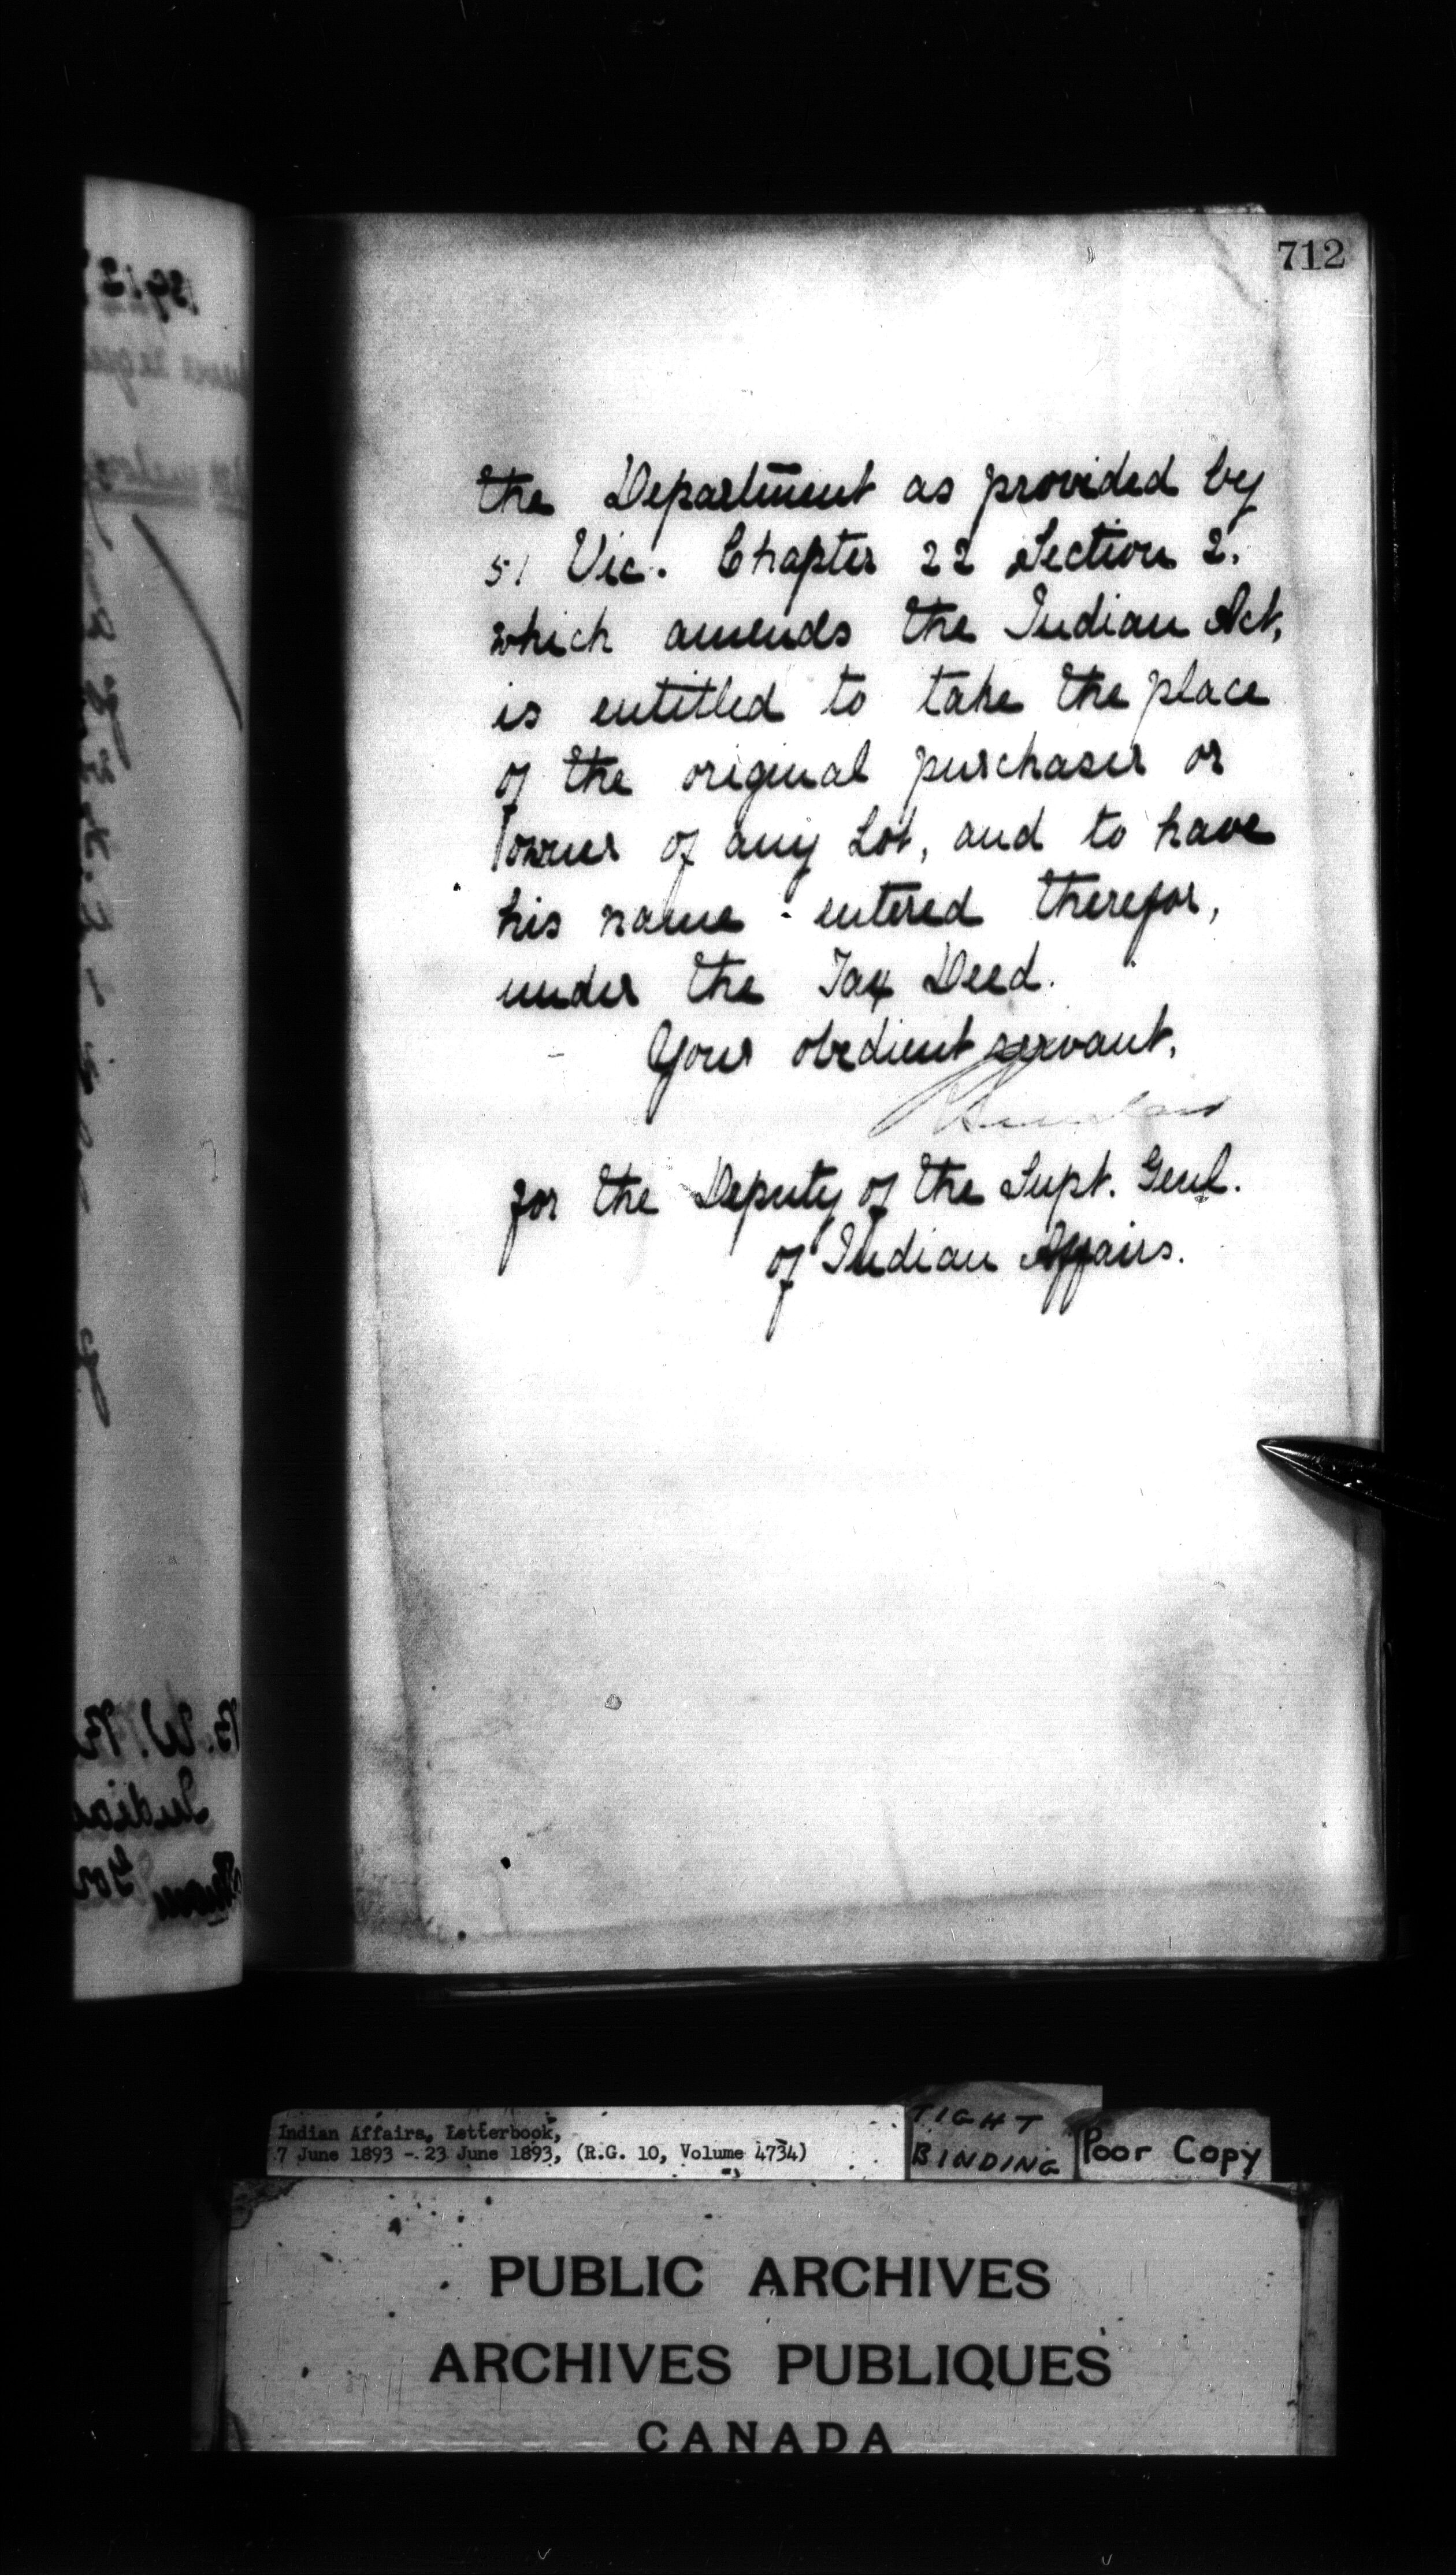 712
the Department as provided by
51 Vic. Chapter 22 Section 2.
which amends the Indian Act,
is entitled to take the place
of the original purchaser or
owner of any Lot, and to have
his name entered therefor,
under the Tax Deed.
Your obedient servant,
for the Deputy of the Supt. Genl.
of Indian Affairs.
Indian Affairs, Letterbook,
7 June 1893 - 23 June 1893, (R.G. 10, Volume 4734)
TIGHT
BINDING
Poor Copy
PUBLIC ARCHIVES
ARCHIVES PUBLIQUES
CANADA